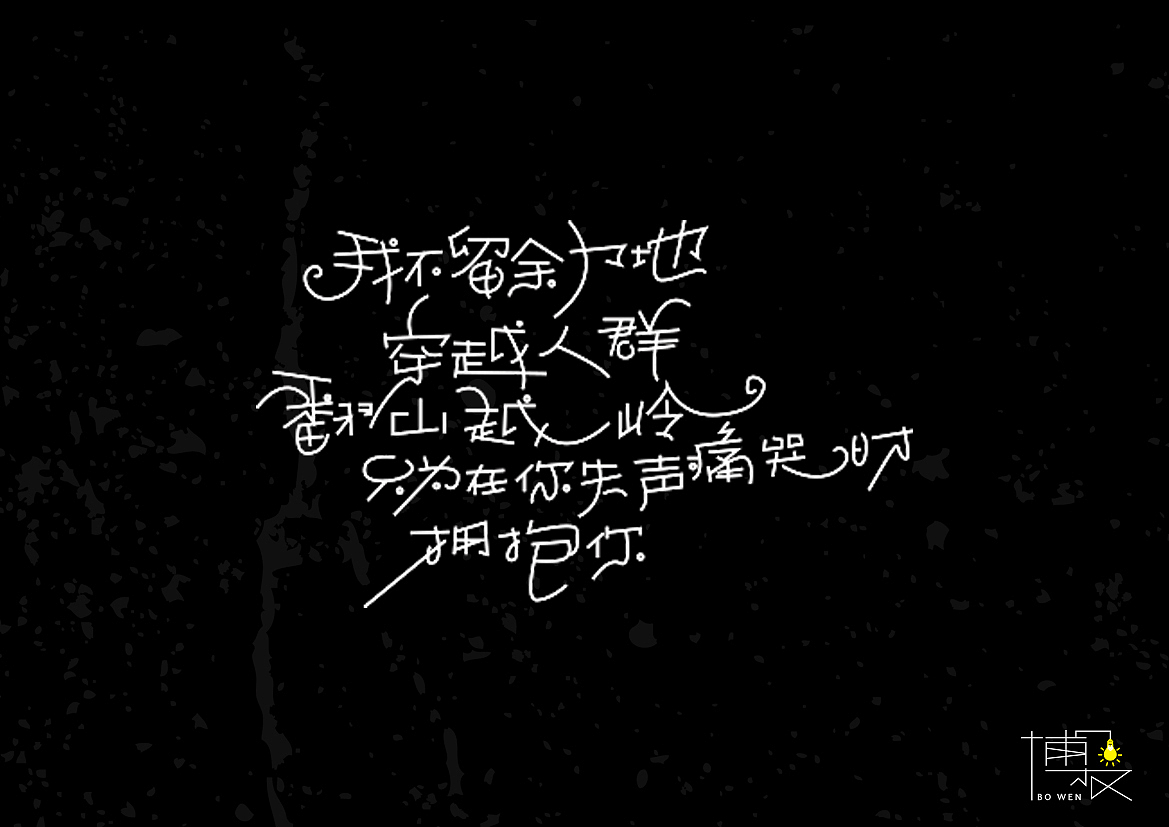 我不留余力地
穿越人群
翻山越岭
只为在你失声痛哭时
拥抱你
博文
BO WEN